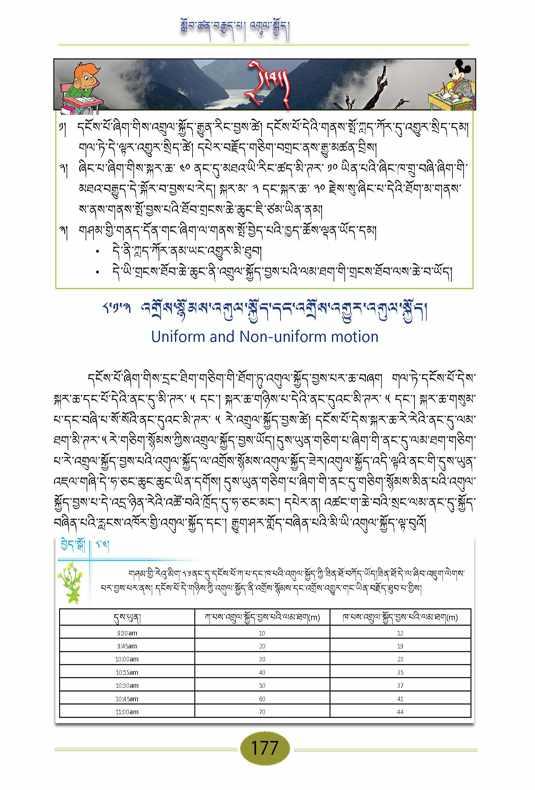 སློབ་ཚན་བརྒྱད་པ། འགུལ་སྐྱོད།
དྲི་བ།
༡། དངོས་པོ་ཞིག་གིས་འགུལ་སྐྱོད་རྒྱུན་རིང་བྱས་ཚེ། དངོས་པོ་དེའི་གནས་སྤོ་ཀླད་ཀོར་དུ་འགྱུར་སྲིད་དམ།
གལ་ཏེ་དེ་ལྟར་འགྱུར་སྲིད་ཚེ། དཔེར་བརྗོད་གཅིག་བགྲང་ནས་རྒྱུ་མཚན་བྲིས།
༢། ཞིང་པ་ཞིག་གིས་སྐར་ཆ་ ༤༠ ནང་དུ་མཐའ་ཡི་རིང་ཚད་མི་ཊར་ ༡༠ ཡིན་པའི་ཞིང་ཁ་གྲུ་བཞི་ཞིག་གི་
མཐའ་བརྒྱུད་དེ་སྐོར་བ་བྱས་པ་རེད། སྐར་མ་ ༢ དང་སྐར་ཆ་ ༢༠ རྗེས་སུ་ཞིང་པ་དེའི་ཐོག་མ་གནས་
ས་ནས་གནས་སྤོ་བྱས་པའི་ཐོབ་གྲངས་ཆེ་ཆུང་ཇི་ཙམ་ཡིན་ནམ།
༣། གཤམ་གྱི་གནད་དོན་གང་ཞིག་ལ་གནས་སྤོ་བྱེད་པའི་ཁྱད་ཆོས་ལྡན་ཡོད་དམ།
• དེ་ནི་ཀླད་ཀོར་ནམ་ཡང་འགྱུར་མི་ཐུབ།
• དེ་ཡི་གྲངས་ཐོབ་ཆེ་ཆུང་ནི་འགུལ་སྐྱོད་བྱས་པའི་ལམ་ཐག་གི་གྲངས་ཐོབ་ལས་ཆེ་བ་ཡོད།
༨.༡.༢ འགྲོས་སྙོམས་འགུལ་སྐྱོད་དང་འགྲོས་འགྱུར་འགུལ་སྐྱོད།
Uniform and Non-uniform motion
དངོས་པོ་ཞིག་གིས་དྲང་ཐིག་གཅིག་གི་ཐོག་ཏུ་འགུལ་སྐྱོད་བྱས་པར་ཆ་བཞག གལ་ཏེ་དངོས་པོ་དེས་
སྐར་ཆ་དང་པོ་དེའི་ནང་དུ་མི་ཊར་ ༥ དང་། སྐར་ཆ་གཉིས་པ་དེའི་ནང་དུའང་མི་ཊར་ ༥ དང་། སྐར་ཆ་གསུམ་
པ་དང་བཞི་པ་སོ་སོའི་ནང་དུའང་མི་ཊར་ ༥ རེ་འགུལ་སྐྱོད་བྱས་ཚེ། དངོས་པོ་དེས་སྐར་ཆ་རེ་རེའི་ནང་དུ་ལམ་
ཐག་མི་ཊར་ ༥ རེ་གཅིག་སྙོམས་ཀྱིས་འགུལ་སྐྱོད་བྱས་ཡོད། དུས་ཡུན་གཅིག་པ་ཞིག་གི་ནང་དུ་ལམ་ཐག་གཅིག་
པ་རེ་འགུལ་སྐྱོད་བྱས་པའི་འགུལ་སྐྱོད་ལ་འགྲོས་སྙོམས་འགུལ་སྐྱོད་ཟེར། འགུལ་སྐྱོད་འདི་ལྟའི་ནང་གི་དུས་ཡུན་
འཇལ་གཞི་དེ་ཧ་ཅང་ཆུང་ཆུང་ཡིན་དགོས། དུས་ཡུན་གཅིག་པ་ཞིག་གི་ནང་དུ་གཅིག་སྙོམས་མིན་པའི་འགུལ་
སྐྱོད་བྱས་པ་དེ་འདྲ་ཉིན་རེའི་འཚོ་བའི་ཁྲོད་དུ་ཧ་ཅང་མང་། དཔེར་ན། འཚང་ཀ་ཆེ་བའི་སྲང་ལམ་ནང་དུ་སྐྱོད་
བཞིན་པའི་རླངས་འཁོར་གྱི་འགུལ་སྐྱོད་དང་། རྒྱུག་ཤར་གློད་བཞིན་པའི་མི་ཡི་འགུལ་སྐྱོད་ལྟ་བུའོ།
བྱེད་སྒོ། ༨.༤།
གཤམ་གྱི་རེའུ་མིག་༨.༡ནང་དུ་དངོས་པོ་ཀ་པ་དང་ཁ་པའི་འགུལ་སྐྱོད་ཀྱི་ཟིན་ཐོ་བཀོད་ཡོད། ཟིན་ཐོ་དེ་ལ་ཞིབ་འཇུག་ལེགས་
པར་བྱས་པར་ནས། དངོས་པོ་དེ་གཉིས་ཀྱི་འགུལ་སྐྱོད་ནི་འགྲོས་སྙོམས་དང་འགྲོས་འགྱུར་གང་ཡིན་བརྗོད་ཐུབ་པ་གྱིས།
དུས་ཡུན། ཀ་པས་འགུལ་སྐྱོད་བྱས་པའི་ལམ་ཐག(m) ཁ་པས་འགུལ་སྐྱོད་བྱས་པའི་ལམ་ཐག(m)
9:30am 10 12
9:45am 20 19
10:00am 30 23
10:15am 40 35
10:30am 50 37
10:45am 60 41
11:00am 70 44
177